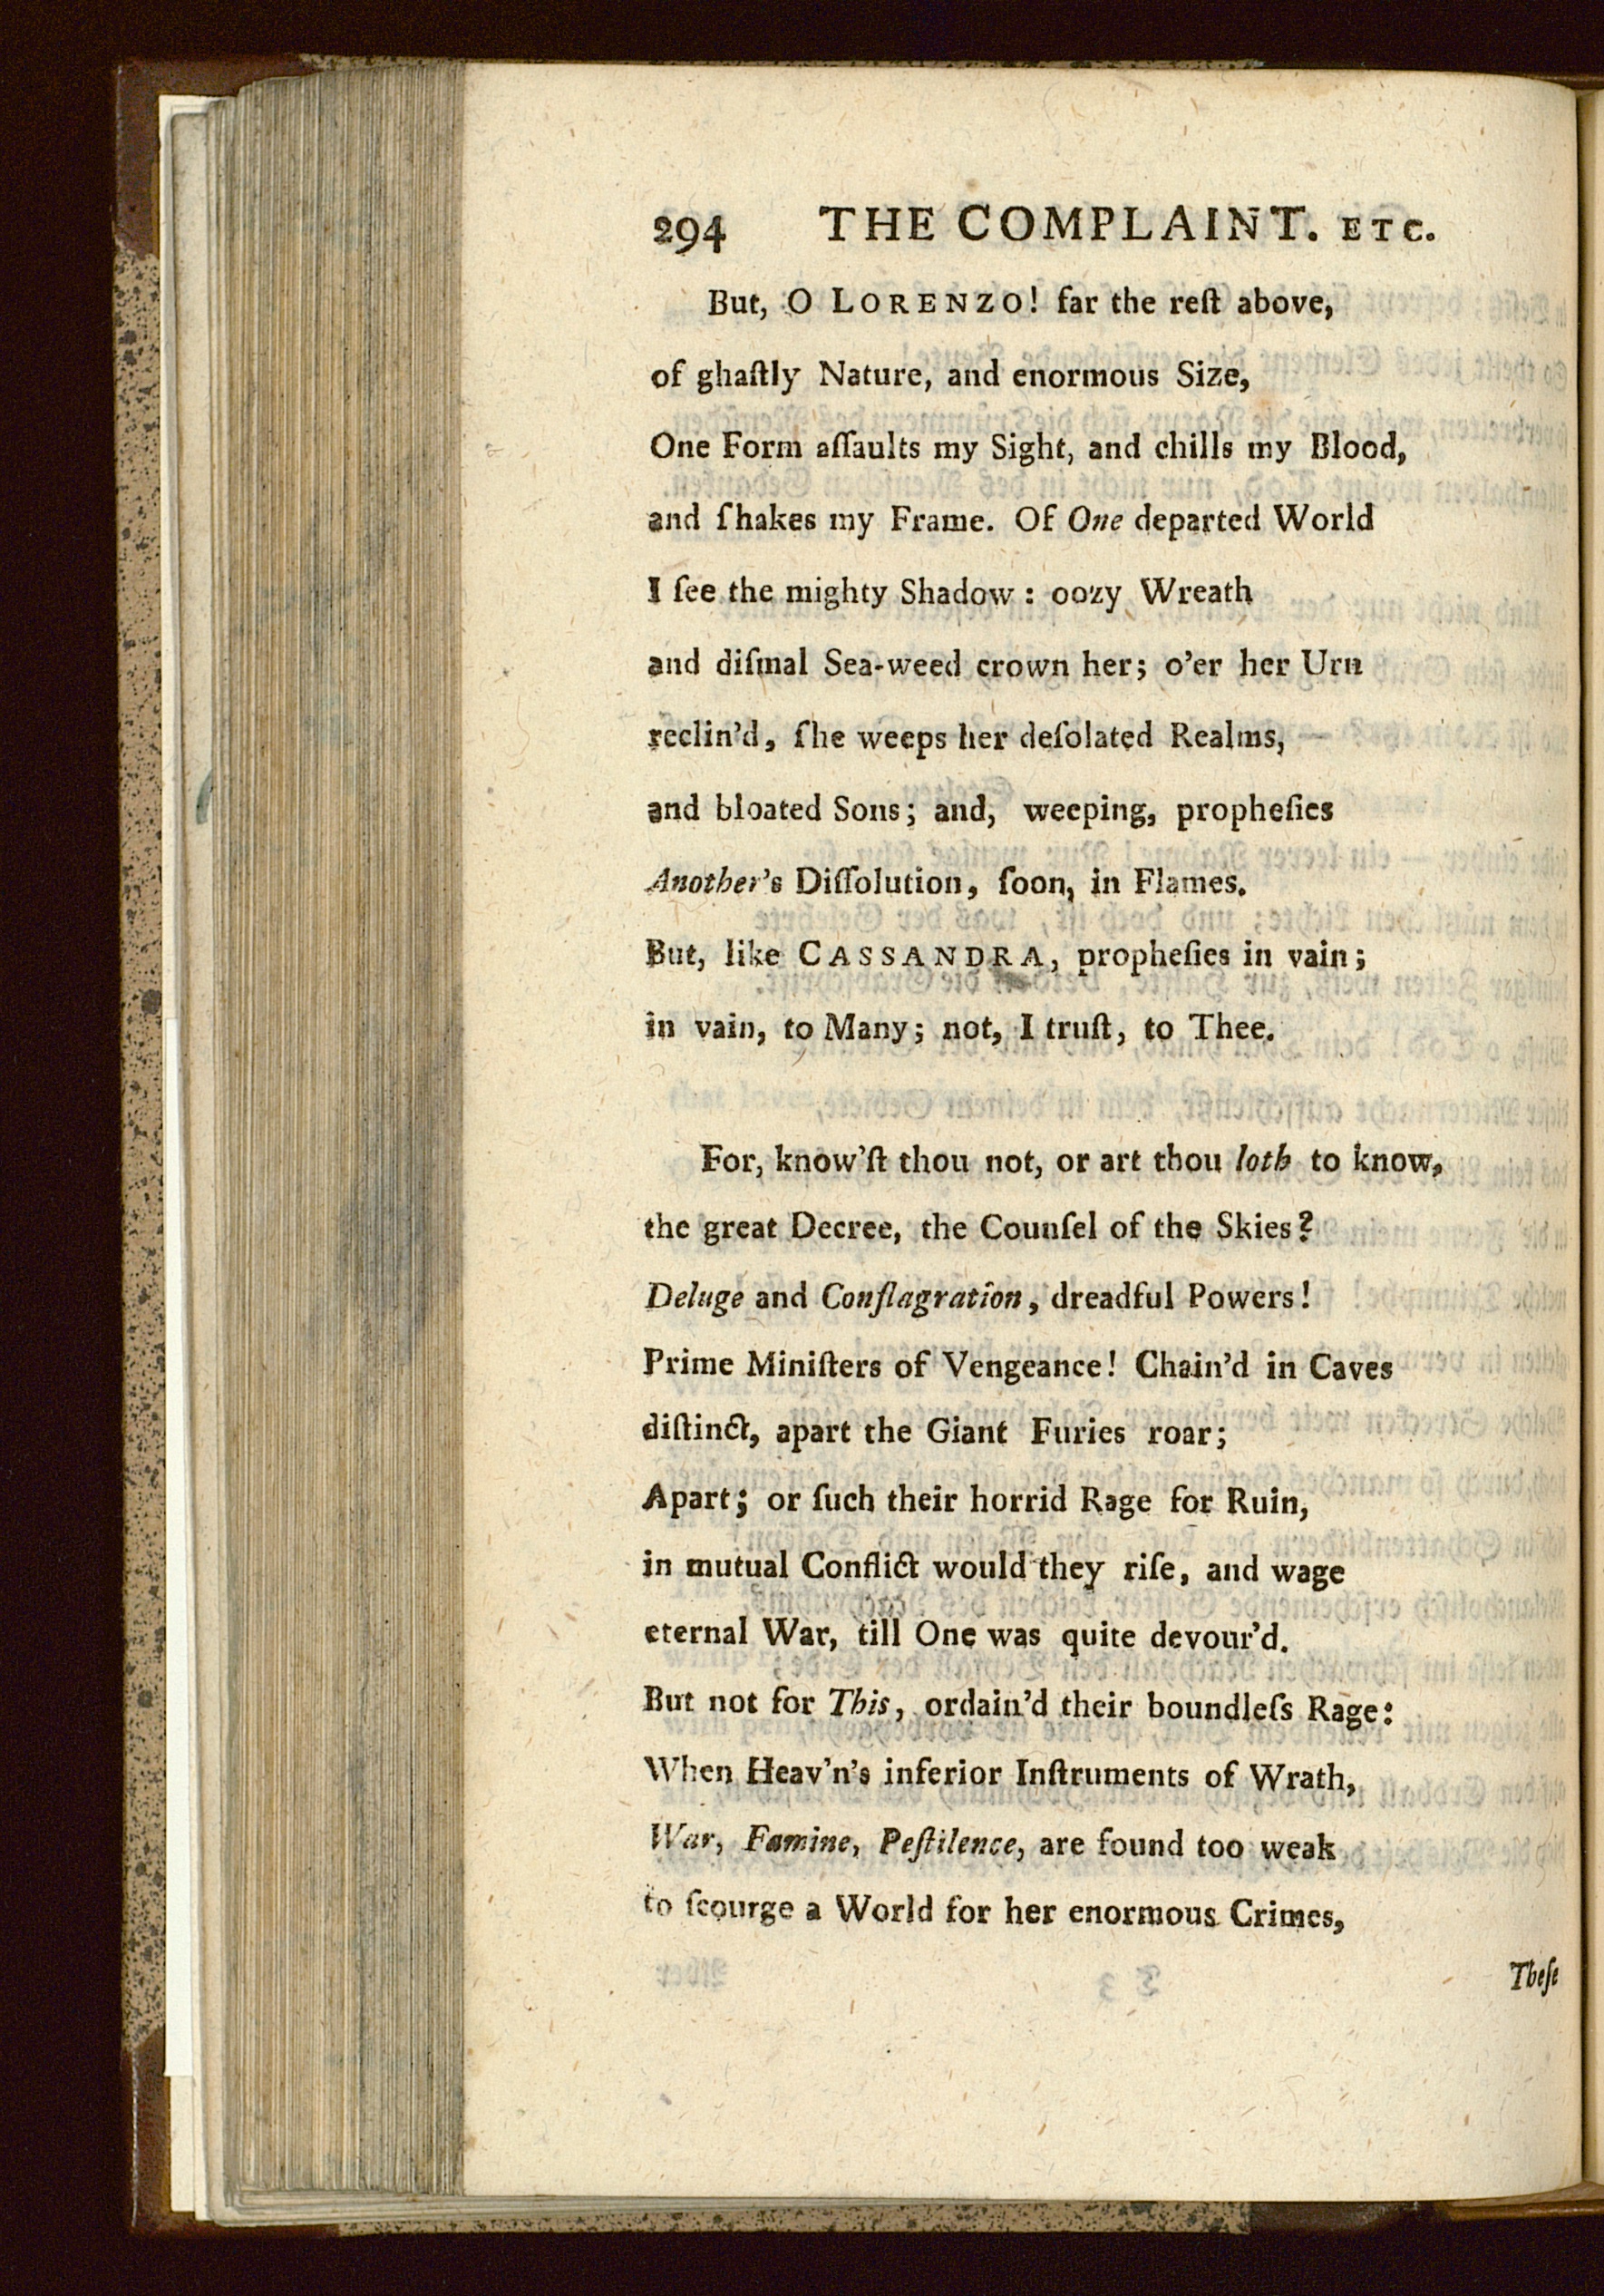 294 THE COMPLAINT. ETC.
But, O LORENZO! far the reſt above,
of ghaſtly Nature, and enormous Size,
One Form aſſaults my Sight, and chills my Blood,
and ſhakes my Frame. Of One departed World
I ſee the mighty Shadow: oozy Wreath
and diſmal Sea-weed crown her; o'er her Urn
reclin'd, ſhe weeps her deſolated Realms,
and bloated Sons; and, weeping, propheſies
Another's Diſſolution, ſoon, in Flames.
But, like CASSANDRA, propheſies in vain;
in vain, to Many; not, I truſt, to Thee.
For, know'ſt thou not, or art thou loth to know,
the great Decree, the Counſel of the Skies?
Deluge and Conflagration, dreadful Powers!
Prime Miniſters of Vengeance! Chain'd in Caves
diſtinct, apart the Giant Furies roar;
Apart; or ſuch their horrid Rage for Ruin,
in mutual Conflict would they riſe, and wage
eternal War, till One was quite devour'd.
But not for This, ordain'd their boundleſs Rage:
When Heav'n's inferior Inſtruments of Wrath,
War, Famine, Peſtilence, are found too weak
to ſcourge a World for her enormous Crimes,
Theſe